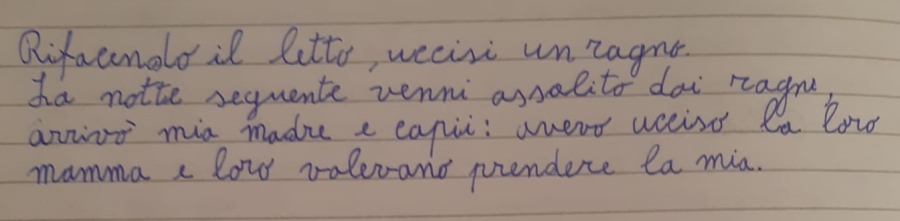 Rifacendo il letto, uccisi un ragno.
La notte seguente venni assalito dai ragni,
arrivò mia madre e capii: avevo ucciso la loro
mamma e loro volevano prendere la mia.